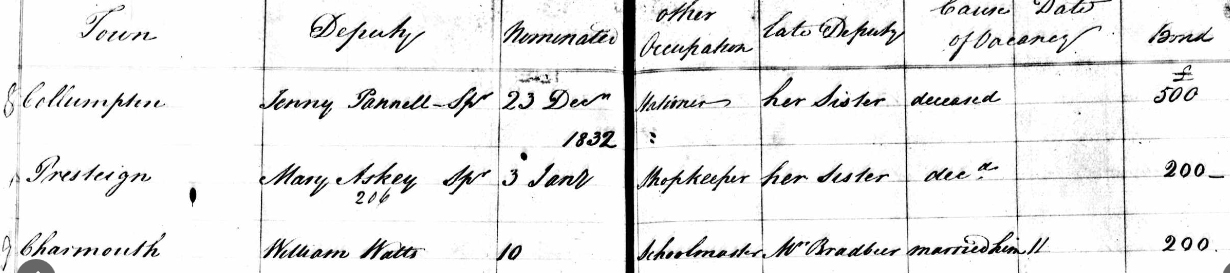 Town Deputy Nominated other Occupation late Deputy Cause Date of Vacancy Bond
£
8 Collumpton Jenny Pannell - Spr 23 Decr Stationer her Sister deceased 500
1832
Presteign Mary Askey Spr 3 Jany Shopkeeper her Sister decd 200
206
9 Charmouth William Watts 10 Schoolmaster Mrs Bradbeer married him !! 200.